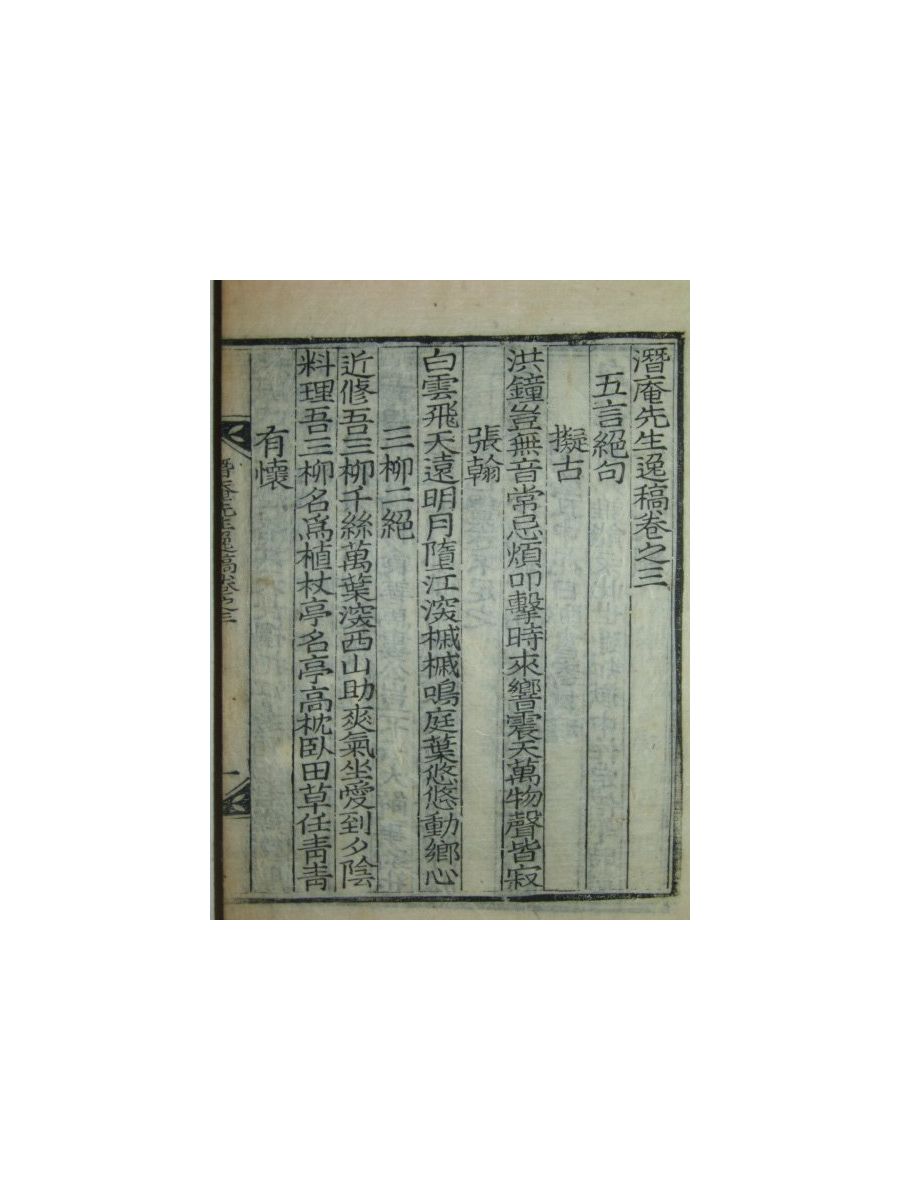 潛庵先生逸稿卷之三
五言絕句
擬古
洪鐘豈無音常忌煩叩擊時來響震天萬物聲皆寂
張翰
白雲飛天遠明月墮江深槭槭鳴庭葉悠悠動鄉心
三柳二絕
近修吾三柳千絲萬葉深西山助爽氣坐愛到夕陰
料理吾三柳名爲植杖亭名亭高枕臥田草任靑靑
有懷
潛庵先生逸稿卷之三
一